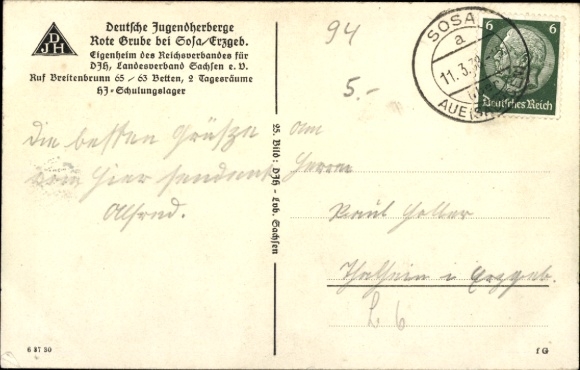 D
JH
Deutsche Jugendherberge
Rote Grube bei Sosa/Erzgeb.
Eigenheim des Reichsverbandes für
DJH, Landesverband Sachsen e. V.
Ruf Breitenbrunn 65 / 63 Betten, 2 Tagesräume
HJ-Schulungslager
94
5.-
SOSA
a
11.3.38
AUE (SA
6 6
Deutsches Reich
die besten Grüsze
von hier sendet
Alfred.
25. Bild: DJH - Lvb. Sachsen
am
Herrn
Paul Heller
Thalheim i Erzgeb.
L. 6
6 37 30
fG